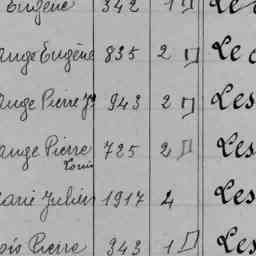 Eugène 342 1
ange Eugène 835 2 Le
ange Pierre Je 943 2 Les
ange Pierre 725 2 Les
Louis
arie Julien 1917 4 Les
ois Pierre 343 1 Les